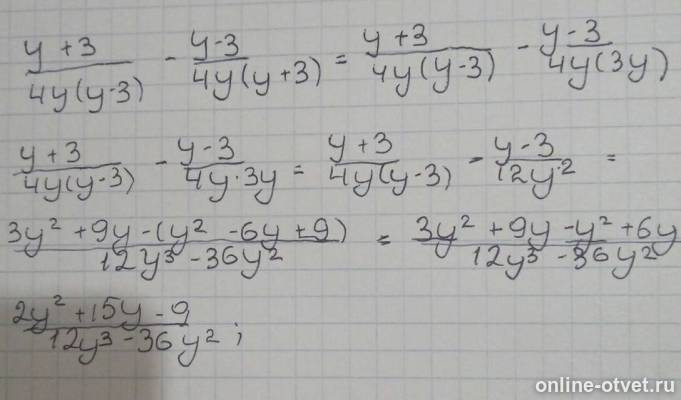 (y + 3)/(4y(y-3)) - (y-3)/(4y(y+3)) = (y+3)/(4y(y-3)) - (y-3)/(4y(3y)
(y+3)/(4y(y-3)) - (y-3)/(4y·3y) = (y+3)/(4y(y-3)) - (y-3)/(12y²) =
(3y² + 9y - (y² - 6y + 9))/(12y³ - 36y²) = (3y² + 9y - y² + 6y)/(12y³ - 36y²)
(2y² + 15y - 9)/(12y³ - 36y²);
online-otvet.ru